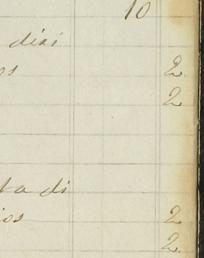 10
disi
os 2
2
ta di
ios 2
2